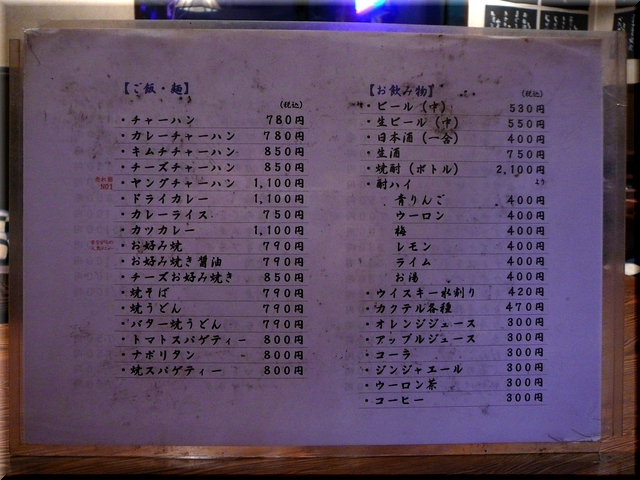 【ご飯・麺】
(税込)
・チャーハン 780円
・カレーチャーハン 780円
・キムチチャーハン 850円
・チーズチャーハン 850円
売れ筋
NO1
・ヤングチャーハン 1,100円
・ドライカレー 1,100円
・カレーライス 750円
・カツカレー 1,100円
・お好み焼 790円
・お好み焼き醤油 790円
・チーズお好み焼き 850円
・焼そば 790円
・焼うどん 790円
・バター焼うどん 790円
・トマトスパゲティー 800円
・ナポリタン 800円
・焼スパゲティー 800円
【お飲み物】
(税込)
・ビール(中) 530円
・生ビール(中) 550円
・日本酒(一合) 400円
・生酒 750円
・焼酎(ボトル) 2,100円
より
・酎ハイ
青りんご 400円
ウーロン 400円
梅 400円
レモン 400円
ライム 400円
お湯 400円
・ウイスキー水割り 420円
・カクテル各種 470円
・オレンジジュース 300円
・アップルジュース 300円
・コーラ 300円
・ジンジャエール 300円
・ウーロン茶 300円
・コーヒー 300円